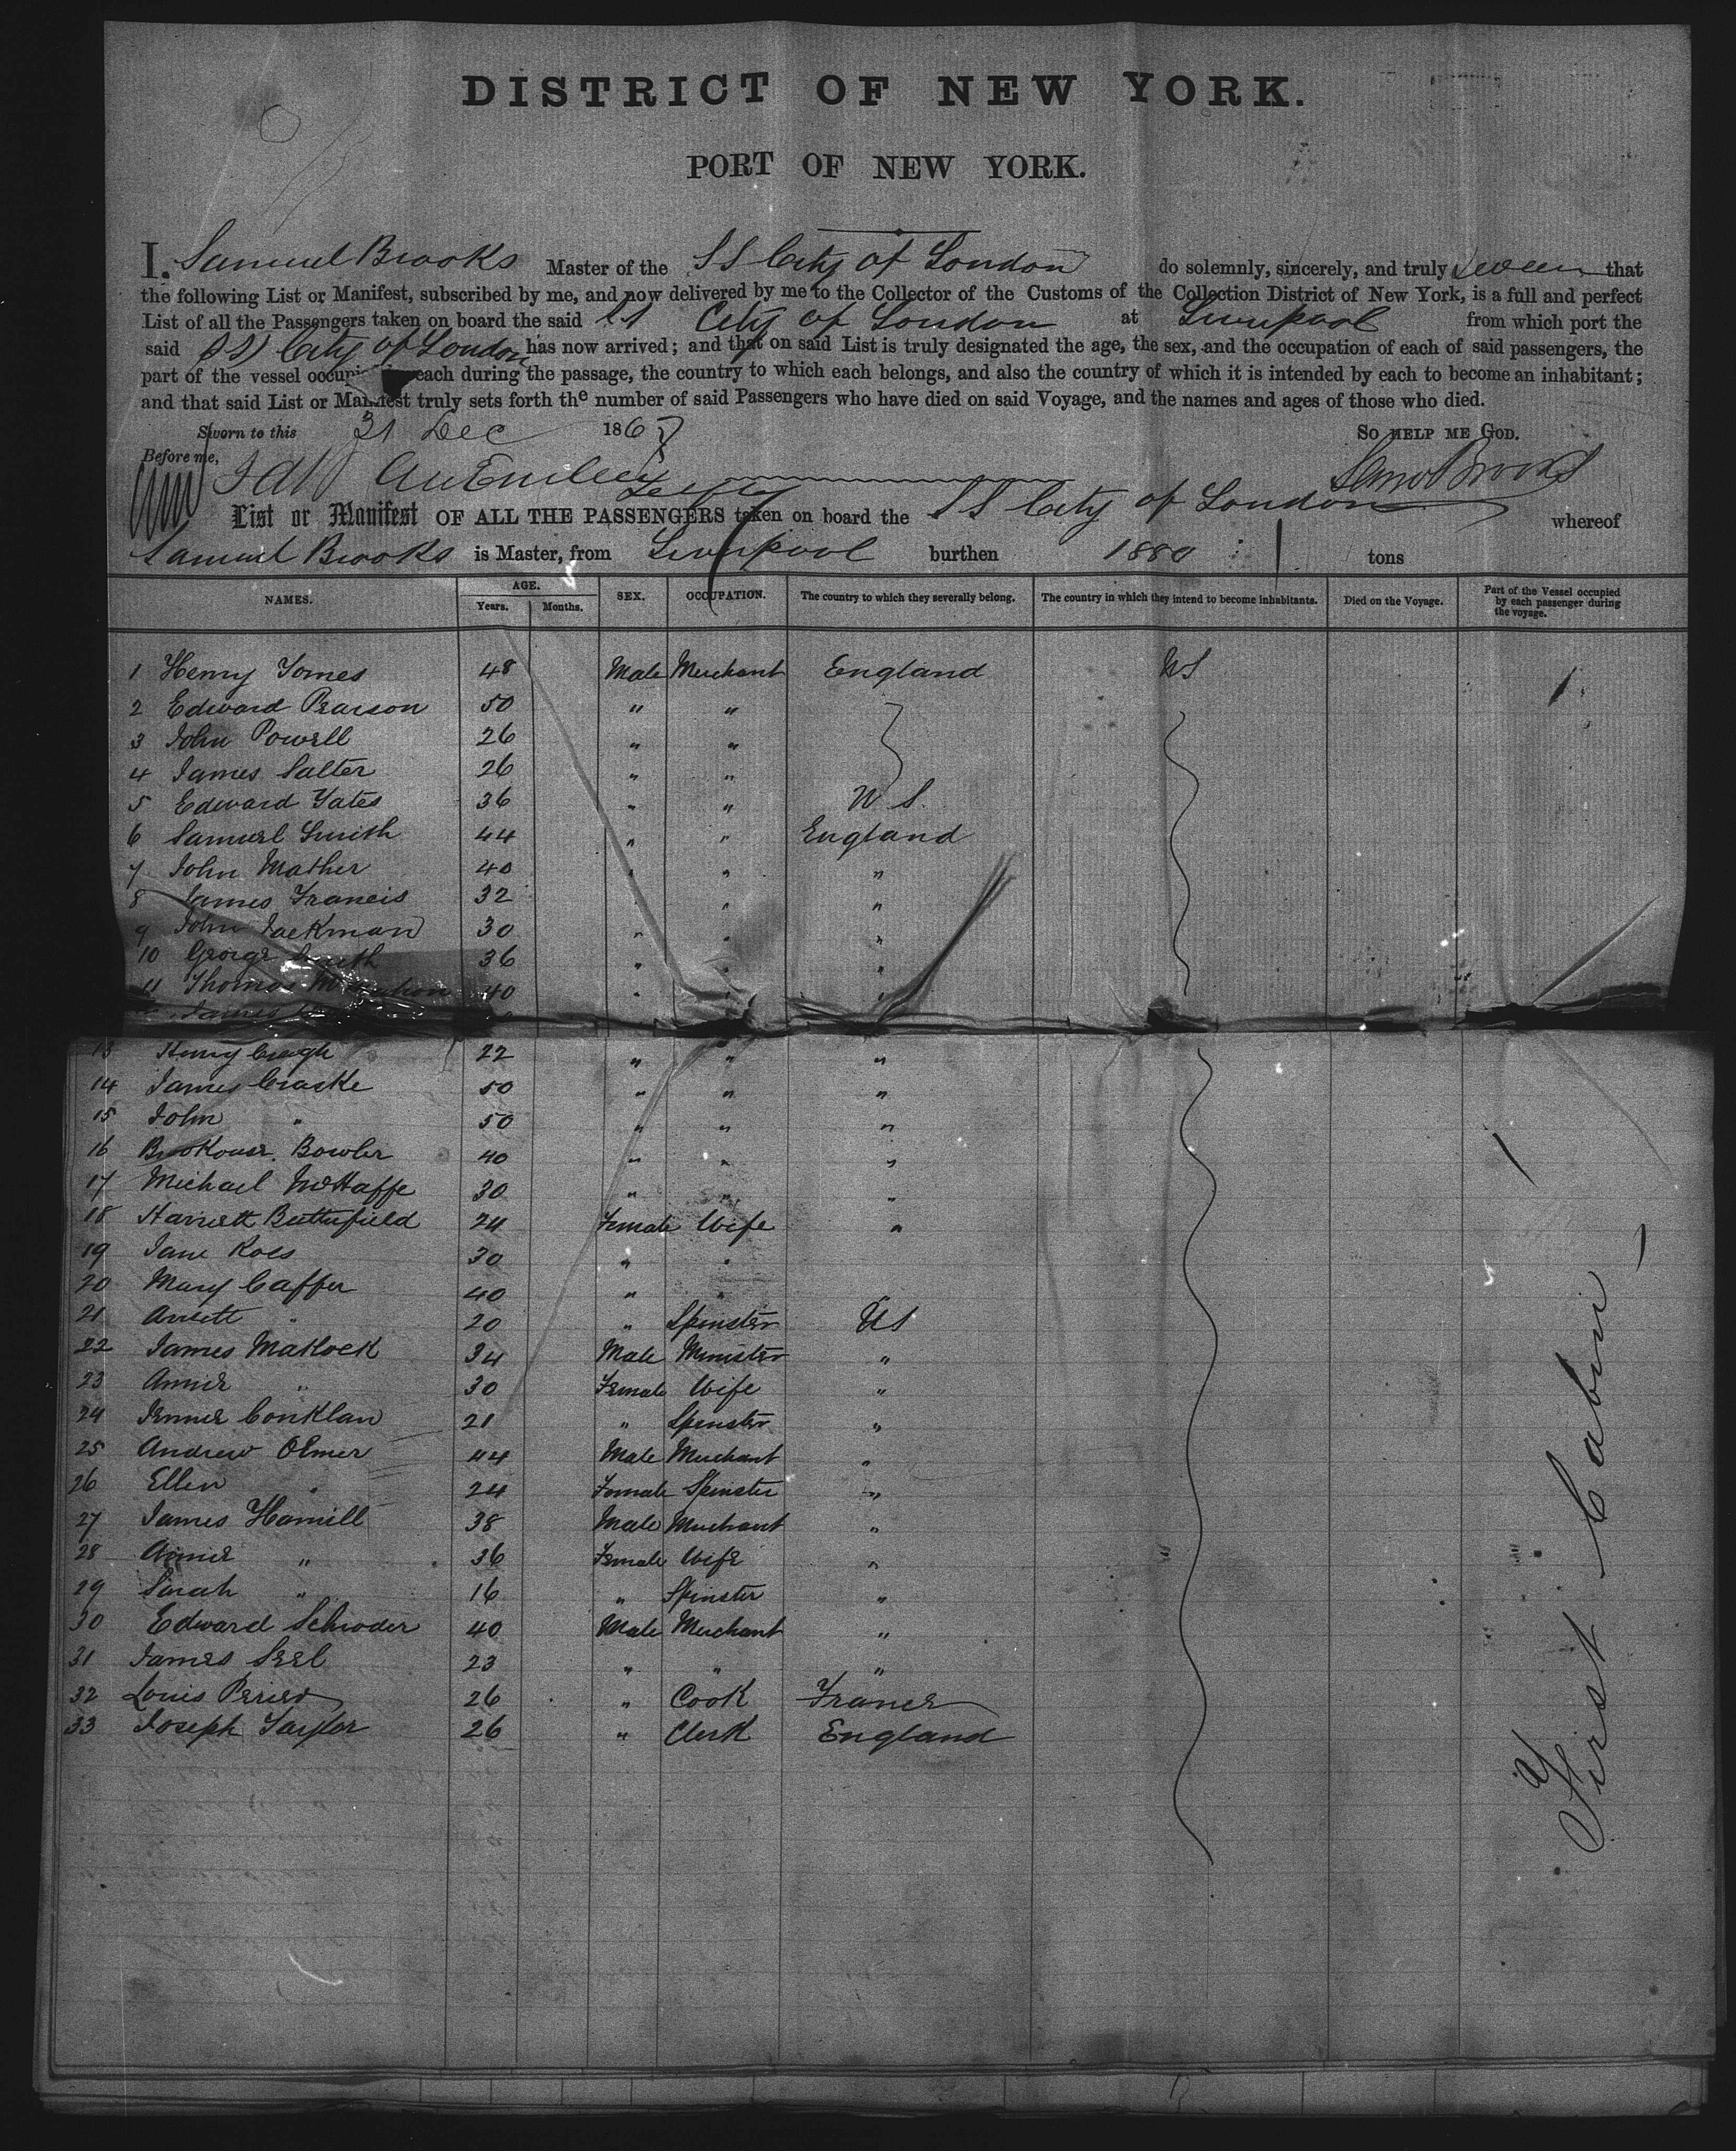 DISTRICT OF NEW YORK.
PORT OF NEW YORK.
I, Samuel Brooks Master of the SS City of London do solemnly, sincerely, and truly swear that
the following List or Manifest, subscribed by me, and now delivered by me to the Collector of the Customs of the Collection District of New York, is a full and perfect
List of all the Passengers taken on board the said SS City of London at Liverpool from which port the
said SS City of London has now arrived; and that on said List is truly designated the age, the sex, and the occupation of each of said passengers, the
part of the vessel each during the passage, the country to which each belongs, and also the country of which it is intended by each to become an inhabitant;
and that said List or Manifest truly sets forth the number of said Passengers who have died on said Voyage, and the names and ages of those who died.
Sworn to this 31 Dec 1867 SO HELP ME GOD.
Before me, Saml Brooks
List or Manifest OF ALL THE PASSENGERS taken on board the SS City of London whereof
Samuel Brooks is Master, from Liverpool burthen 1880 tons
NAMES. AGE. Years. Months. SEX. OCCUPATION. The country to which they severally belong. The country in which they intend to become inhabitants. Died on the Voyage. Part of the Vessel occupied by each passenger during the voyage.
1 Henry Tomes 48 Male Merchant England US
2 Edward Pearson 50 " "
3 John Powell 26 " "
4 James Salter 26 " "
5 Edward Yates 36 " " U S.
6 Samuel Smith 44 " " England
7 John Mather 40 " " "
8 James Francis 32 " "
9 John Jackman 30 " " "
10 George Smith 36 " " "
11 Thomas 40 " " "
James
13 Henry 22 " " "
14 James Craske 50 " " "
15 John " 50 " " "
16 Bowler 40 " " "
17 Michael McHaffe 30 " " "
18 Harriett Butterfield 24 Female Wife "
19 Jane 30 " "
20 Mary Caffer 40 " "
21 " 20 " Spinster US
22 James Matlock 34 Male Minister "
23 Annie " 30 Female Wife "
24 Jennie Conklan 21 " Spinster "
25 Andrew Olmer 44 Male Merchant "
26 Ellen " 24 Female Spinster "
27 James Hamill 38 Male Merchant "
28 Annie " 36 Female Wife "
29 Sarah " 16 " Spinster "
30 Edward Schroder 40 Male Merchant "
31 James Seel 23 " " "
32 Louis Perier 26 " Cook France
33 Joseph Taylor 26 " Clerk England
First Cabin